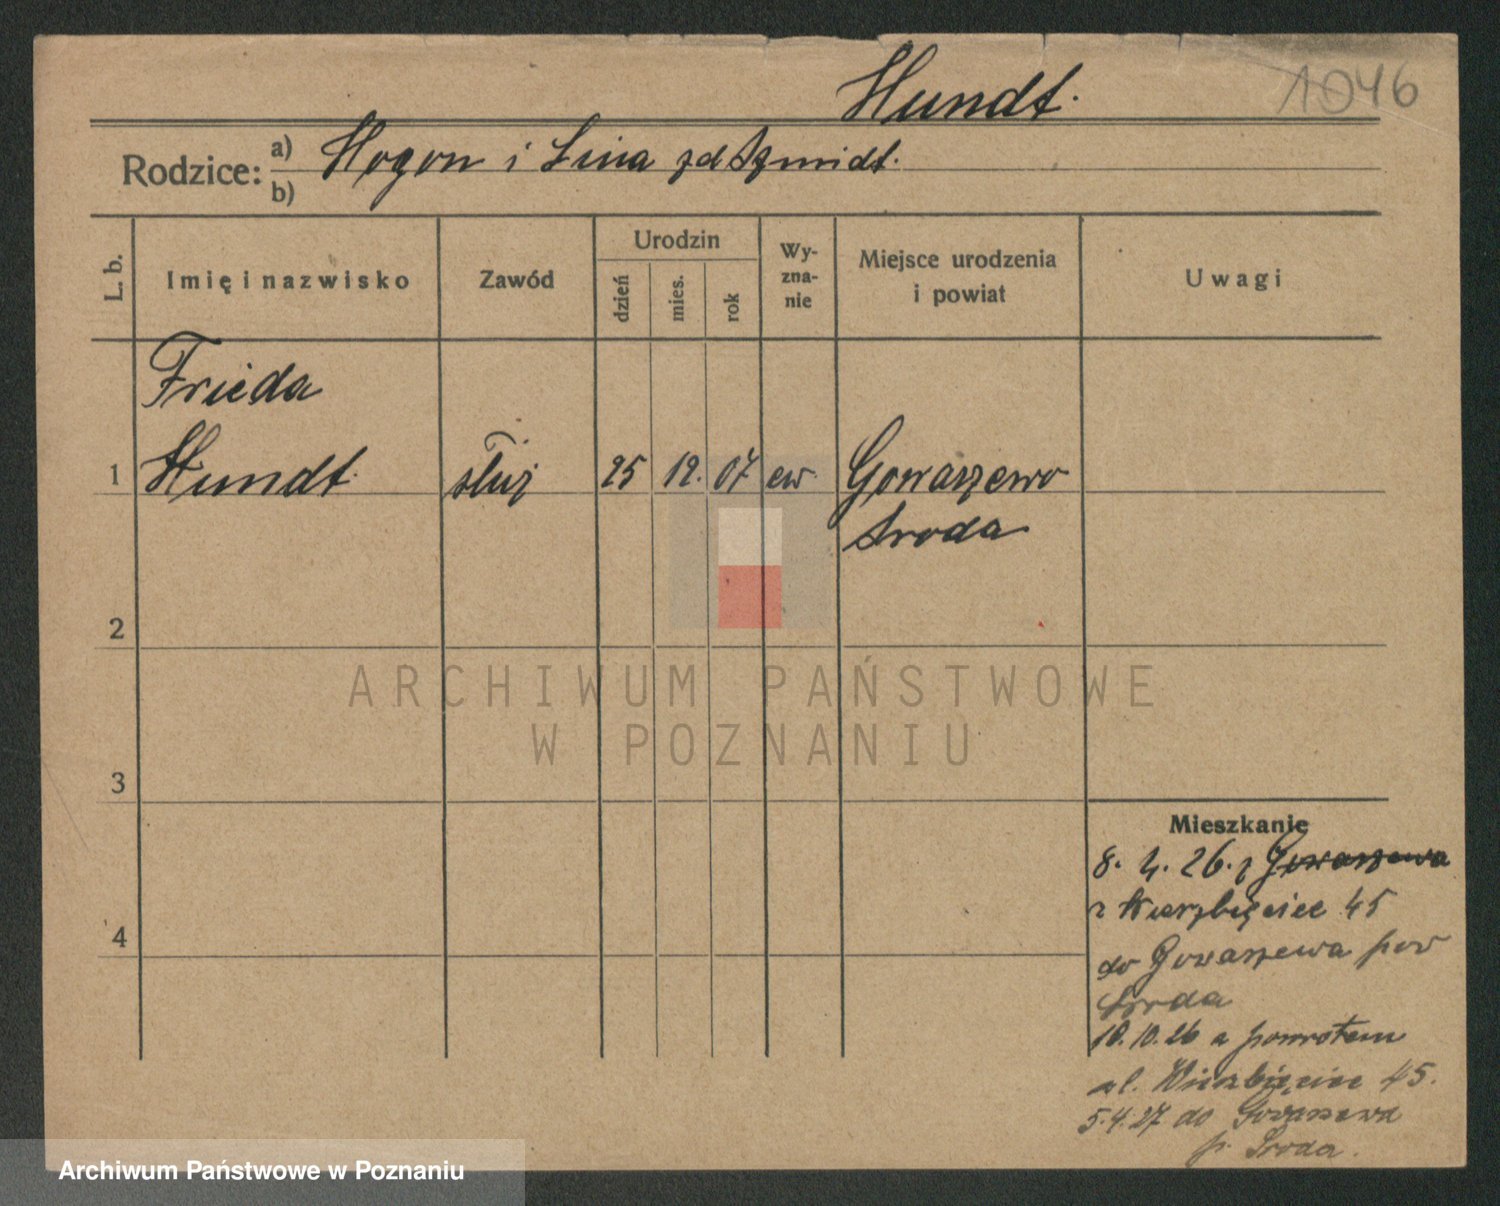 Hundt.
1046
Rodzice: a) Hogon i Lina zd Szmidt.
b)
L. b.
Imię i nazwisko
Zawód
Urodzin
dzień
mies.
rok
Wy-
zna-
nie
Miejsce urodzenia
i powiat
Uwagi
Frieda
1 Hundt. służ 25 12. 07 ew. Gowarzewo
Sroda
2
3
4
Mieszkanie
8. 4. 26. z Gowarzewa
z Wierzbięcice 45
do Gowarzewa pow
Sroda
10. 10. 26 z powrotem
ul. Wierzbięcice 45.
5.4.27 do Gowarzewa
p. Sroda.
ARCHIWUM PAŃSTWOWE
W POZNANIU
Archiwum Państwowe w Poznaniu